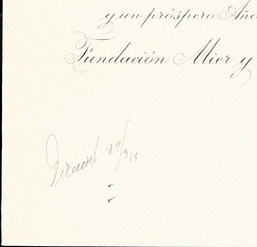 y un próspero Año
Fundación Mier y